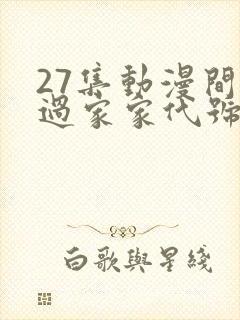 27集動漫間諜
過家家代號
白歌與星綫